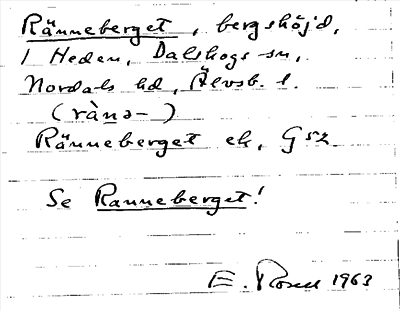 Ränneberget, bergshöjd,
i Heden, Dalskogs sn,
Nordals hd, Älvsb. l.
(rànə-)
Ränneberget ek,
Se Ranneberget!
E. Rosell 1963